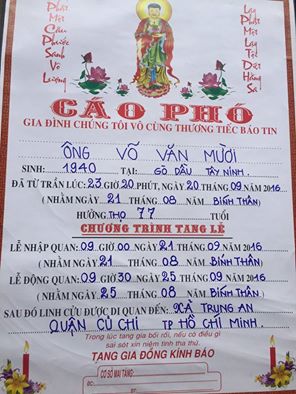 Phật
Một
Câu
Phước
Sanh
Vô
Lượng
Lạy
Phật
Một
Lạy
Tội
Diệt
Hằng
Sa
CÁO PHÓ
GIA ĐÌNH CHÚNG TÔI VÔ CÙNG THƯƠNG TIẾC BÁO TIN
ÔNG VÕ VĂN MƯỜI
SINH: 1940 TẠI: GÒ DẦU TÂY NINH.
ĐÃ TỪ TRẦN LÚC: 23 GIỜ 20 PHÚT, NGÀY 20 THÁNG 09 NĂM 2016
(NHẰM NGÀY 21 THÁNG 08 NĂM BÍNH THÂN)
HƯỞNG THỌ 77 TUỔI
CHƯƠNG TRÌNH TANG LỄ
LỄ NHẬP QUAN: 09 GIỜ 00 NGÀY 21 THÁNG 09 NĂM 2016
(NHẰM NGÀY 21 THÁNG 08 NĂM BÍNH THÂN)
LỄ ĐỘNG QUAN: 09 GIỜ 30 NGÀY 25 THÁNG 09 NĂM 2016
(NHẰM NGÀY 25 THÁNG 08 NĂM BÍNH THÂN)
SAU ĐÓ LINH CỬU ĐƯỢC DI QUAN ĐẾN: XÃ TRUNG AN
QUẬN CỦ CHI TP HỒ CHÍ MINH.
Trong lúc tang gia bối rối, nếu có điều gì
sai sót xin niệm tình tha thứ.
TANG GIA ĐỒNG KÍNH BÁO
CƠ SỞ MAI TÁNG:
ĐC:
ĐT: